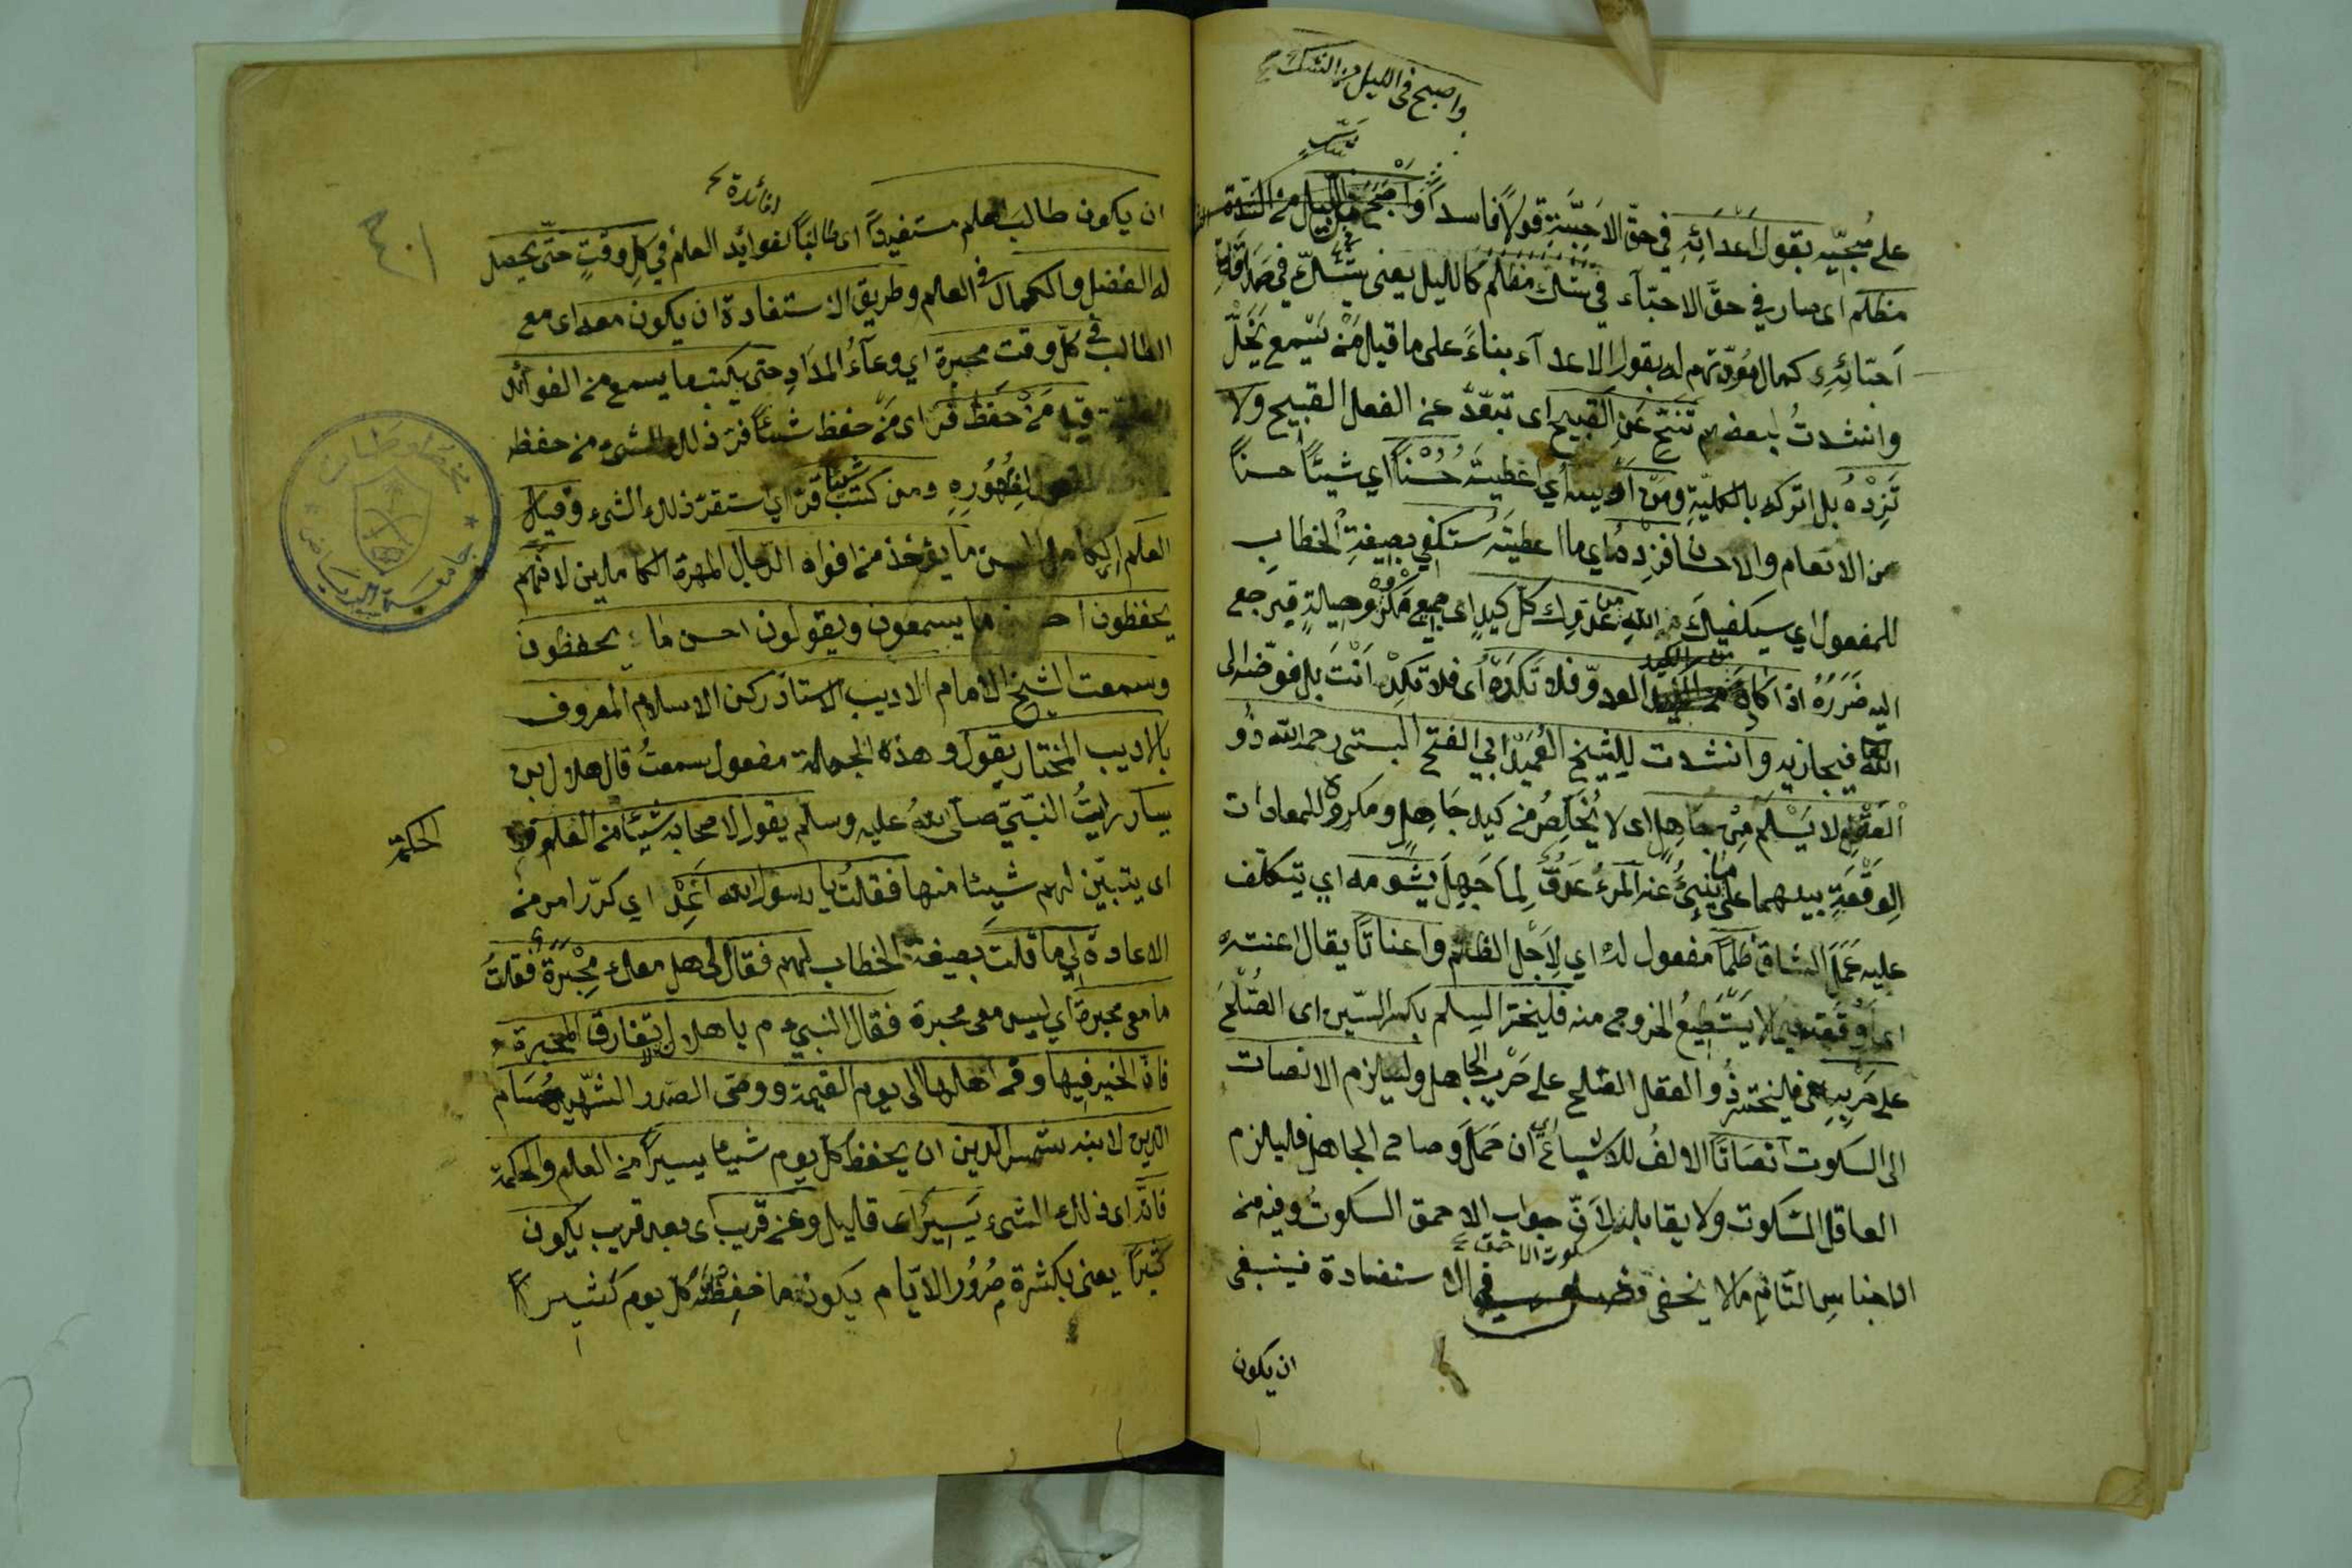 واصبح في الليل من الشك
على محبيه بقول اعدائه في حق الاحبة قولا فاسدا واصبح في ليل من الشك
مظلم اى صار في حق الاحبآء في شك مظلم كالليل يعنى يشك في صداقة
احبّائه كمال مودتهم له بقول الاعدآء بناءً على ما قيل من يسمع يخل
وانشدتُ لبعضهم تنح عن القبيح اى تبعّد عن الفعل القبيح ولا
تَرِدْهُ بل اتركه بالكلية ومن اوليته اي اعطيته حُسْناً اي شيئًا حسناً
من الانعام والاحسان فزده اي ما اعطيته ستكفي بصيغة الخطاب
للمفعول اي سيكفيك الله من عدوك كل كيد اى جميع مكر وحيلة فيرجع
اليه ضَرَرُهُ اذا كاد العدوّ فلا تكده اى فلا تكد انت بل فوّضه الى
الله فيجازيه وانشدت للشيخ العميد ابي الفتح البستى رحمه الله ذُو
العقل لا يسلم من جاهل اى لا يخلص من كيد جاهل ومكره للمعادات
الوقعة بينهما على ما ينبئ عنه المرءُ عدوّ لما جهل يشومه اي يتكلف
عليه عمل الشاق ظلما مفعول له اي لاجل الظلم واعناتًا يقال اعنته
اى اوقعته فيما لا يستطيع الخروج منه فليختر السلم بكسر السّين اى الصُّلْحَ
على حربه اى فليختر ذُو العقل الصلح على حرب الجاهل وليلزم الانصات
اى السكوت انصاتًا الالفُ للاشباع اى ان حمل وصاح الجاهل فليلزم
العاقل السّكوت ولا يقابله لانّ جواب الاحمق السكوتُ وفيه من
سكوت الاحمق
الاجناسِ التّام ما لا يخفى فصل في الاستفادة فينبغى
ان يكون
افائدة
ان يكون طالب العلم مستفيدًا اى طالبًا لفوايد العلم في كل وقتٍ حتّى يحصل
له الفضل والكمال في العلم وطريق الاستفادة ان يكون معه اى مع
الطالب في كلّ وقت محبرة اي وعآءُ المداد حتى يكتب ما يسمع من الفوائد
قيل مَنْ حفظ فرّ اى من حفظ شيئًا فرّ ذلك الشئ من حفظه
ومن كتب شيئا قرّ اي استقرّ ذلك الشئ وقيل
العلم الكامل ما يؤخذ من افواه الرجال المهرة الكاملين لانّهم
يحفظون احسن ما يسمعون ويقولون احسن ما يحفظون
وسمعت الشيخ الامام الاديب الاستاذ ركن الاسلام المعروف
بالاديب المختار يقول وهذه الجملة مفعول سمعتُ قال هلال بن
يسار رايتُ النّبىّ صلّى اللهُ عليه وسلّم يقول لاصحابه شيئًا من العلم و
الحكمة
اى يتبيّن لهم شيئا منها فقلتُ يا رسول الله اَعِدْ اي كرّر امر من
الاعادة لي ما قلت بصيغة الخطاب لهم فقال لى هل معك محبرة فقلتُ
ما معى محبرة اي ليس معى محبرة فقال النبي عم يا هلال لا تفارق المحبرة
فانّ الخير فيها وفى اهلها الى يوم القيمة ووصّى الصّدر الشّهيد حُسَام
الدين لابنه شمس الدين ان يحفظ كلّ يوم شيئا يسيرًا من العلم والحكمة
فانّه اى ذلك الشئ يَسِيرٌ اى قليل وعن قريب اى بعد قريب يكون
كثيرًا يعنى بكثرة مرُور الايّام يكون ما حفظته كلّ يوم كثيرا
مخطوطات
جامعة الرياض